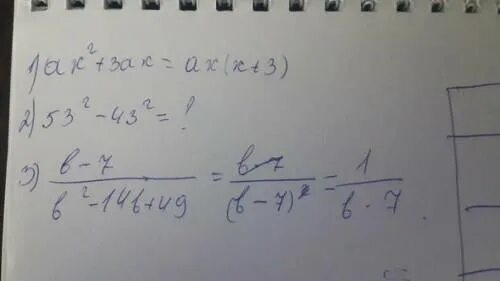 1) ax² + 3ax = ax(x+3)
2) 53² - 43² = ?
3) (в - 7)/(в² - 14в + 49) = (в - 7)/(в - 7)² = 1/(в - 7)